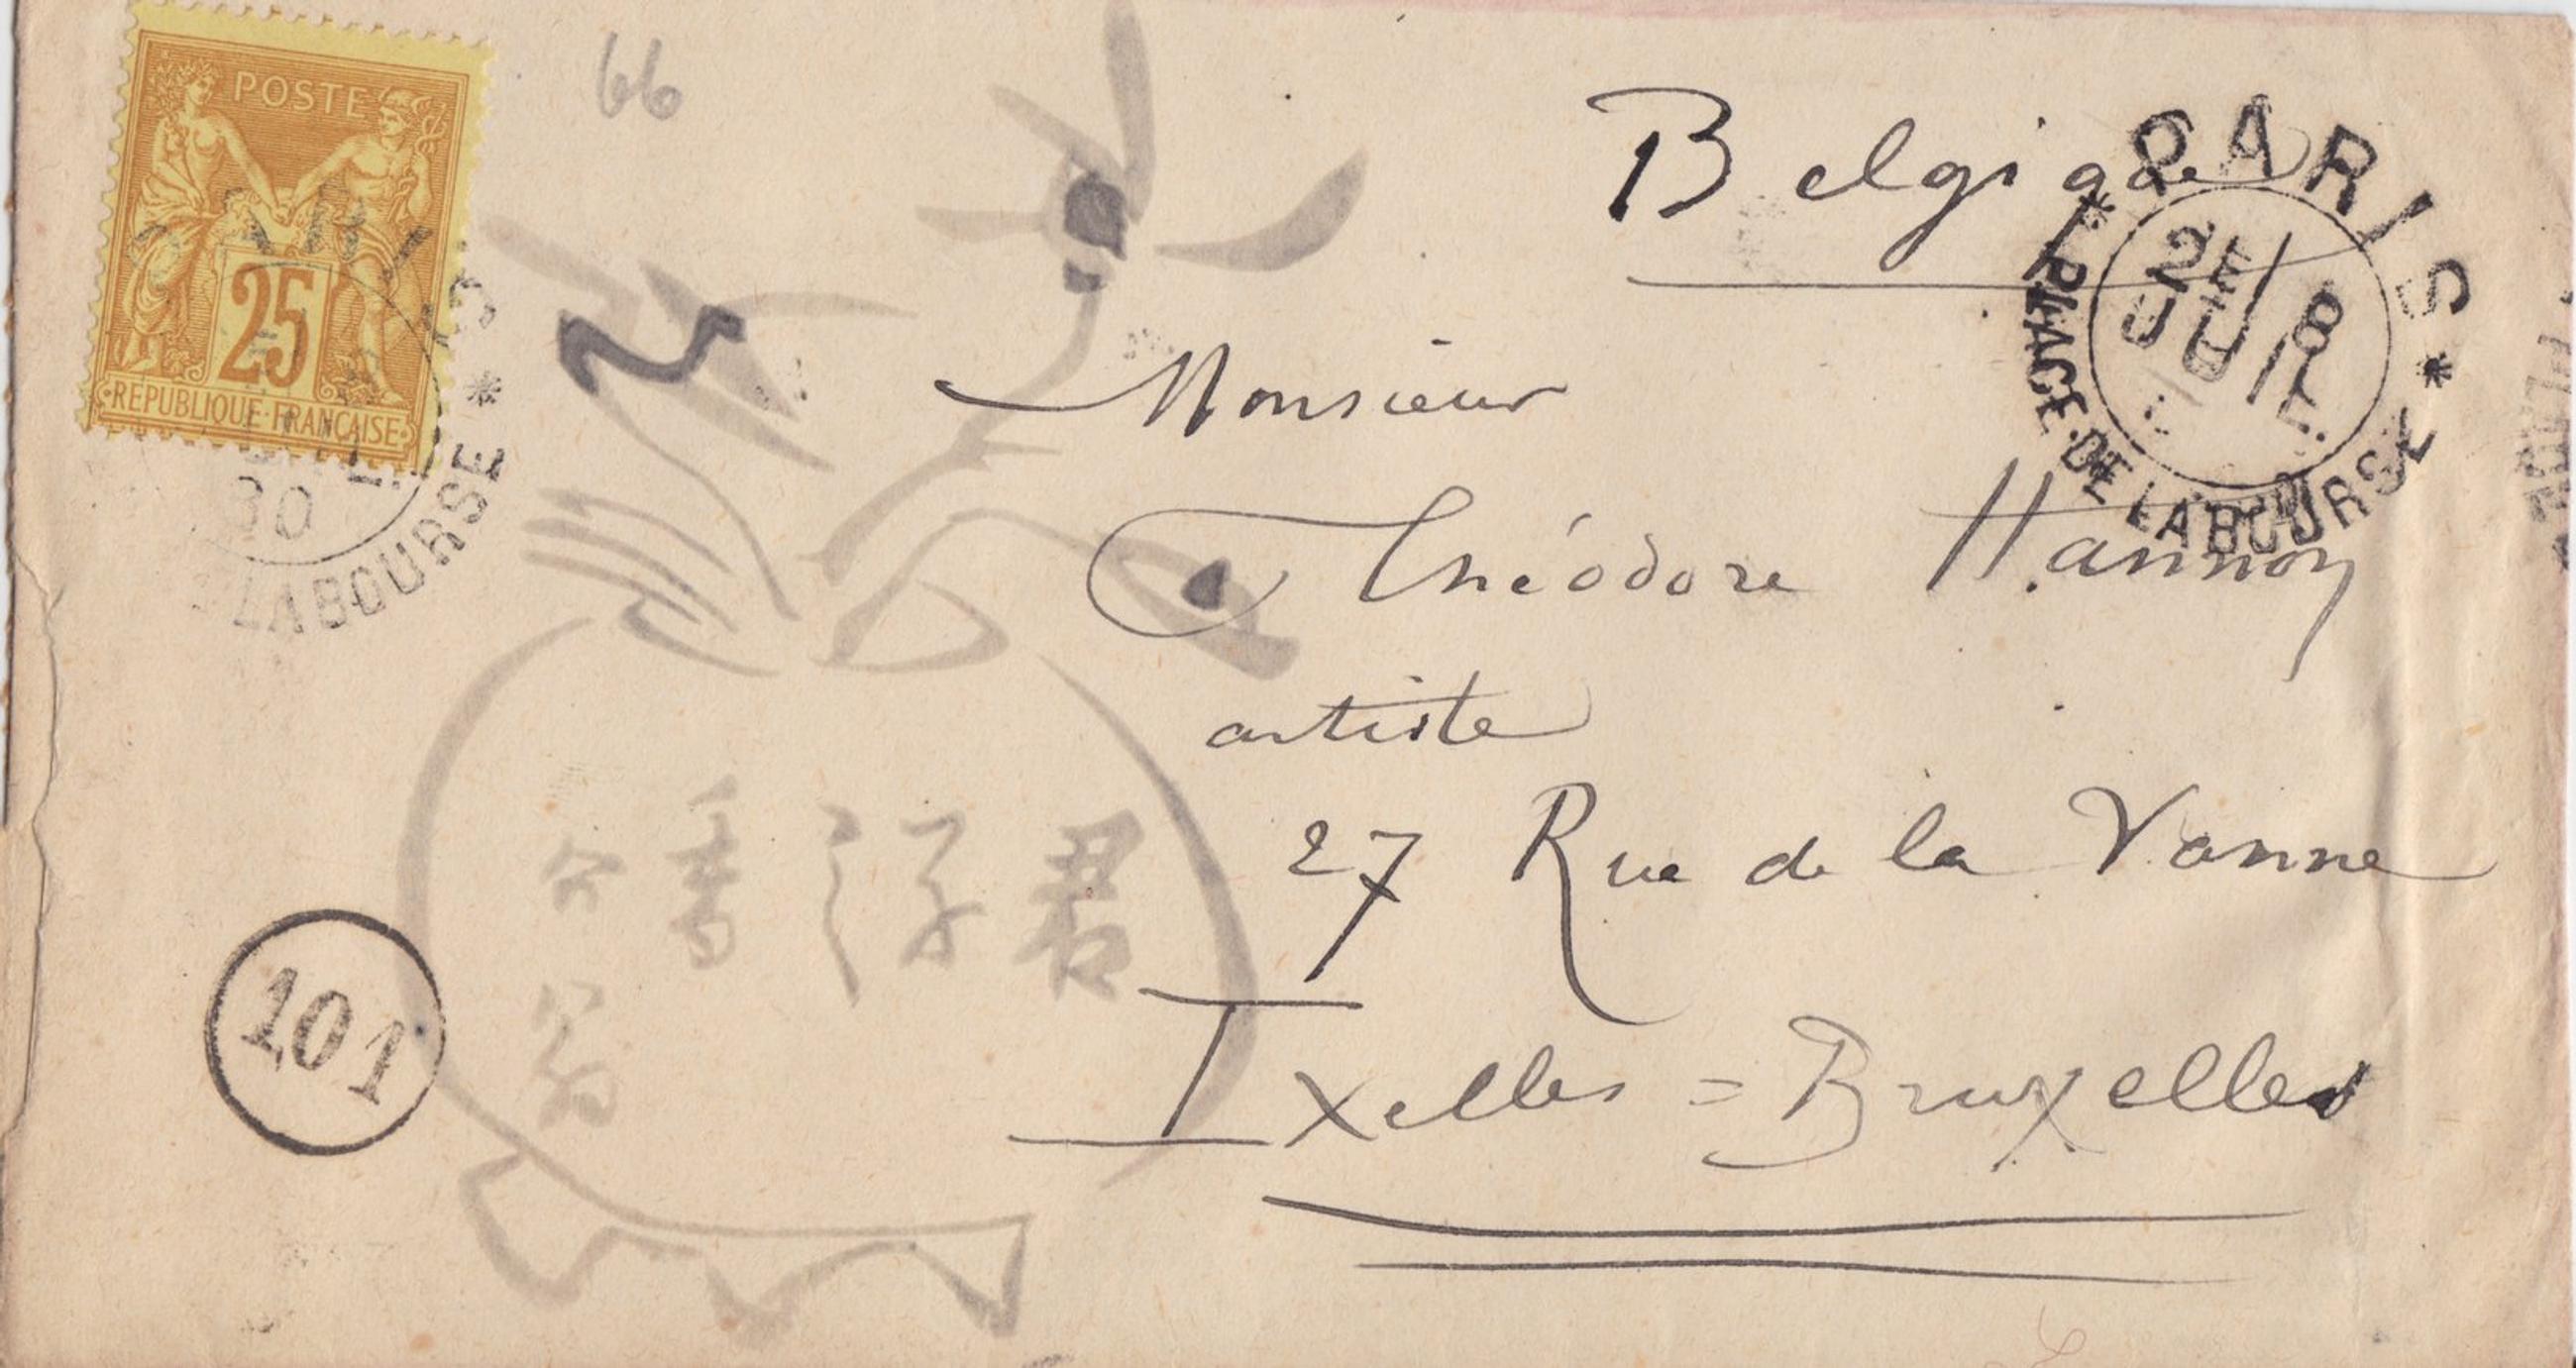 POSTE
25
·REPUBLIQUE·FRANÇAISE·
66
Belgique
PARIS
PLACE·DE LA BOURSE
2E
8
JUIL
80
LA BOURSE
Monsieur
Théodore Hannon
artiste
27 Rue de la Vanne
Ixelles = Bruxelles
101
君